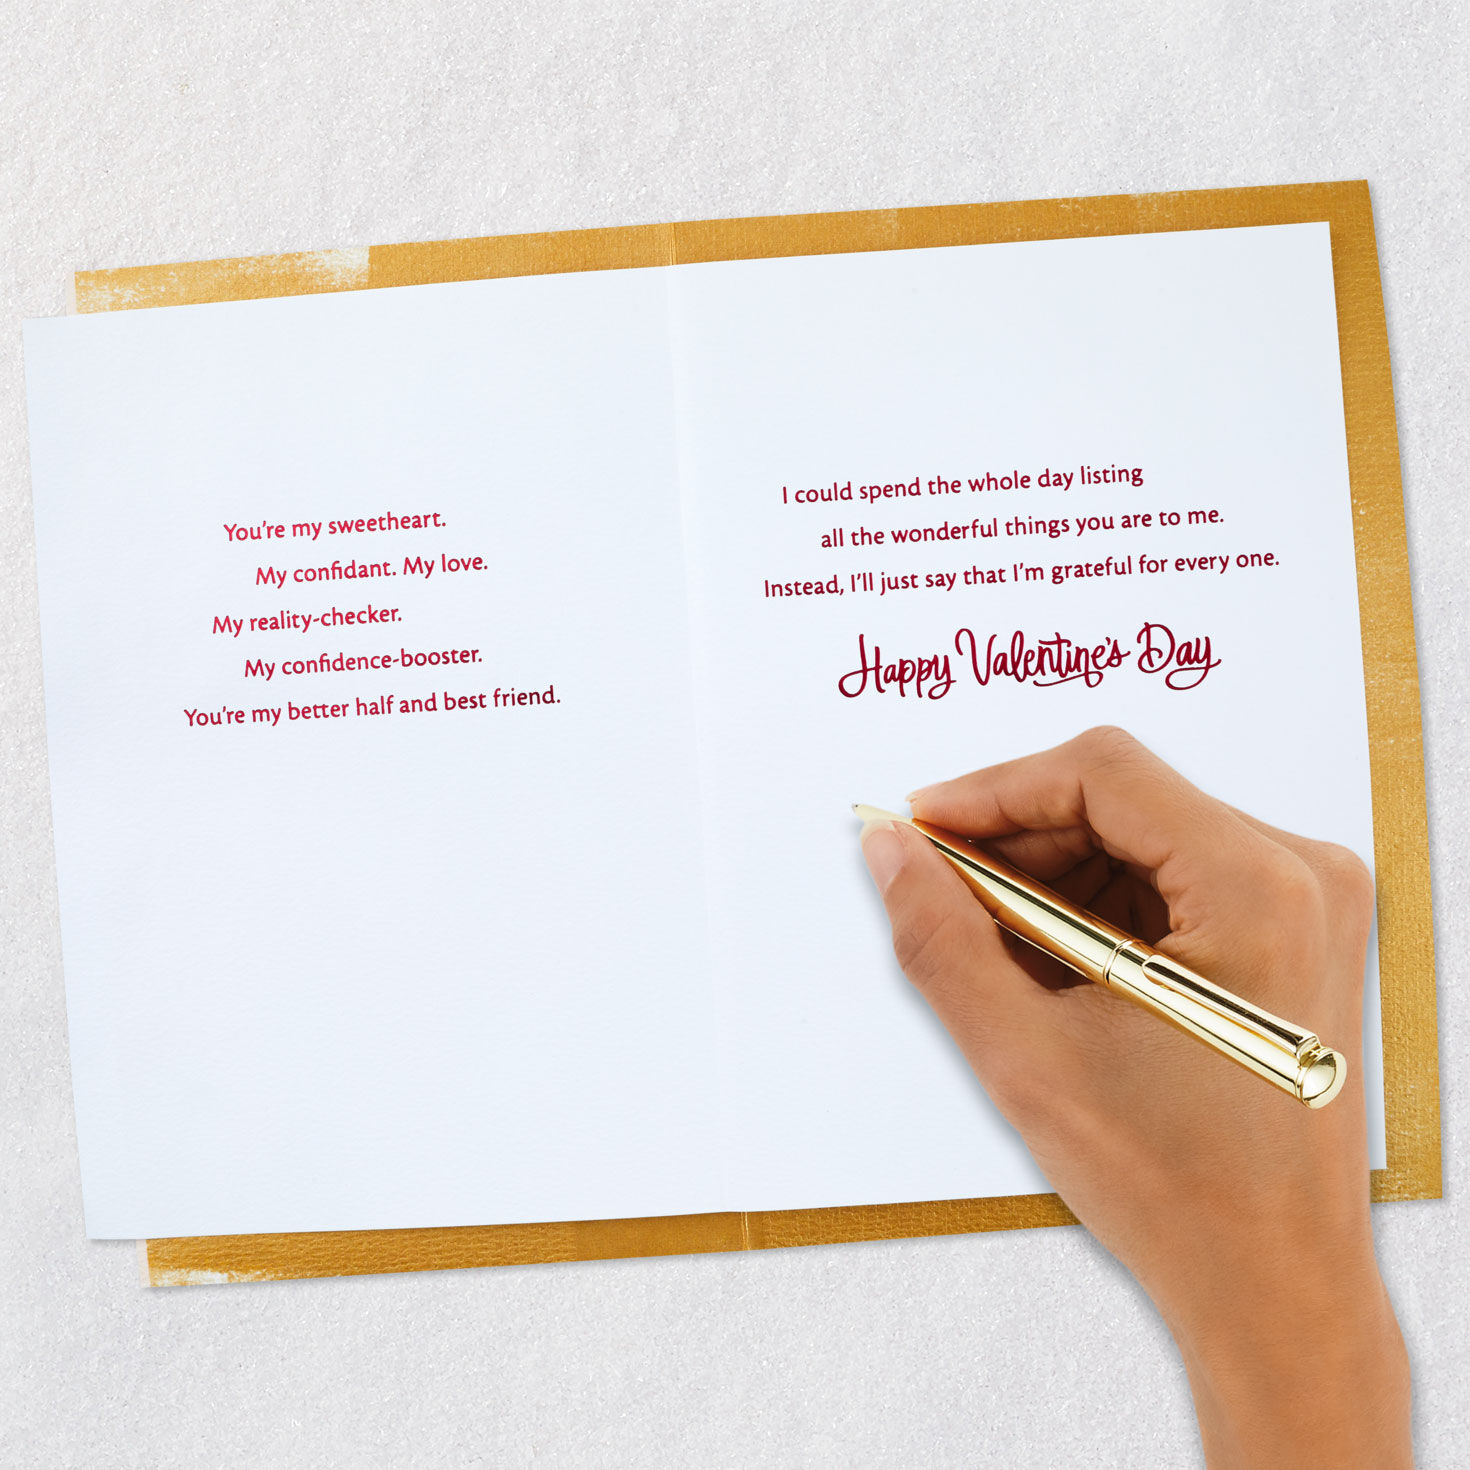 You're my sweetheart.
My confidant. My love.
My reality-checker.
My confidence-booster.
You're my better half and best friend.
I could spend the whole day listing
all the wonderful things you are to me.
Instead, I'll just say that I'm grateful for every one.
Happy Valentine's Day